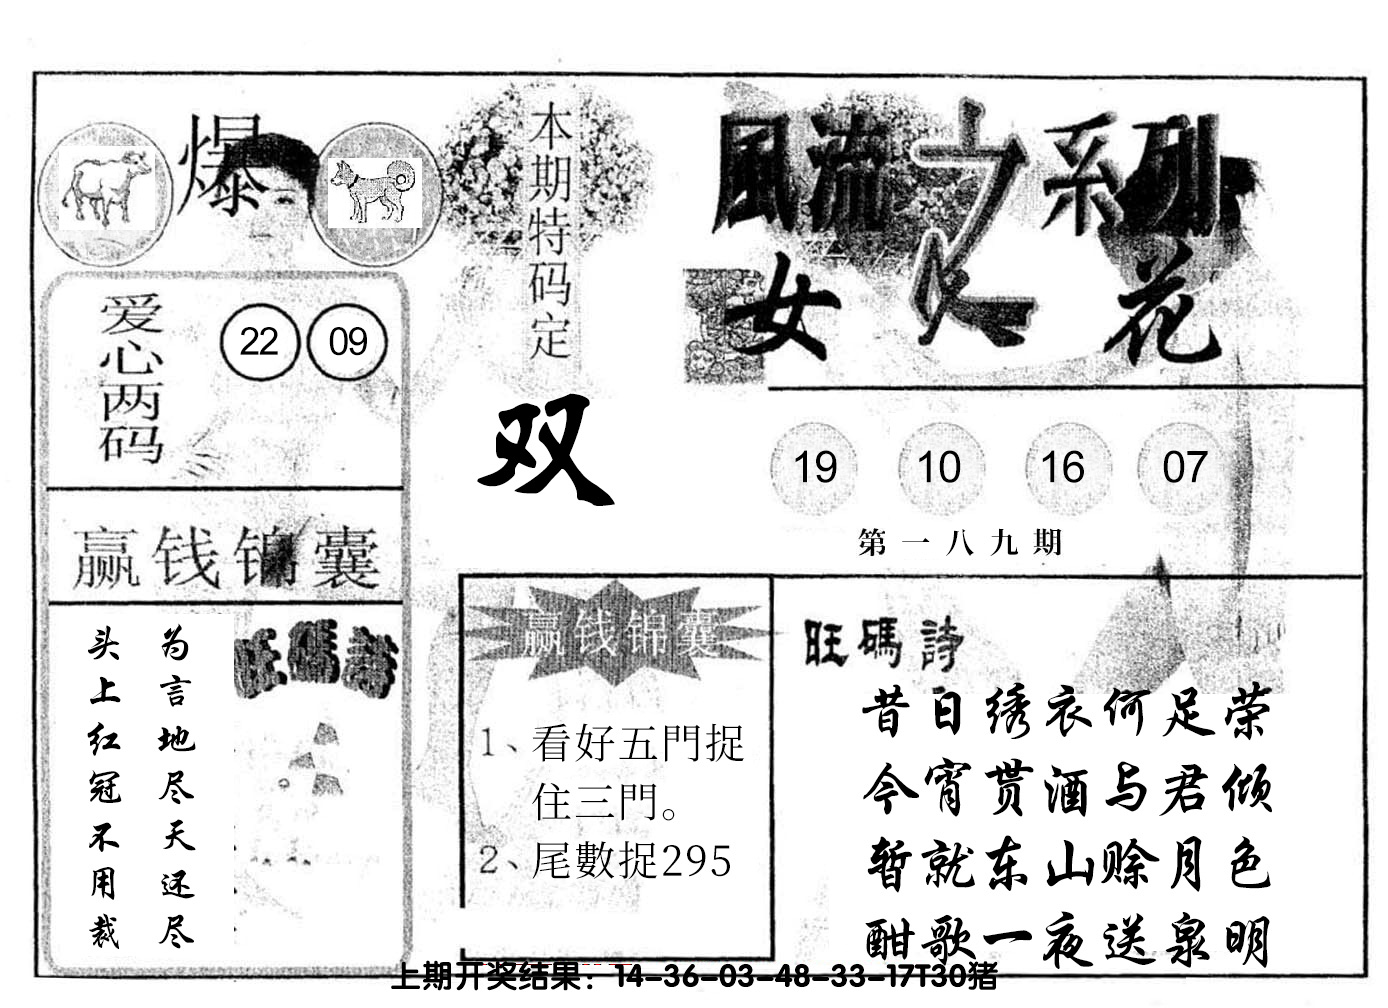 爆
本期特码定
双
爱心两码
22 09
赢钱锦囊
头上红冠不用裁
为言地尽天还尽
旺碼詩
風流之系列
女人花
19 10 16 07
第一八九期
赢钱锦囊
1、看好五門捉
住三門。
2、尾數捉295
旺碼詩
昔日绣衣何足荣
今宵贳酒与君倾
暂就东山赊月色
酣歌一夜送泉明
上期开奖结果：14-36-03-48-33-17T30猪